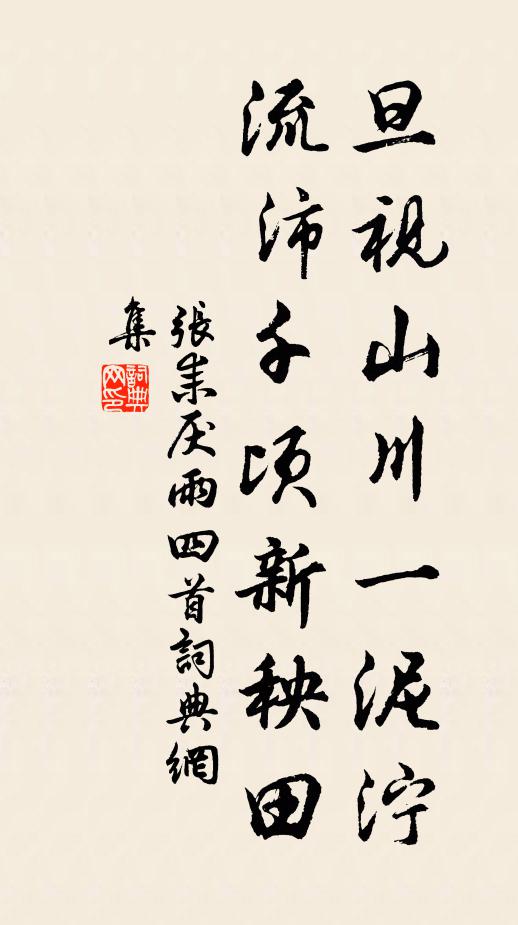 旦視山川一泥泞
流沛千頃新秧田
張耒厌雨四首詞典網
集
詞典
网印